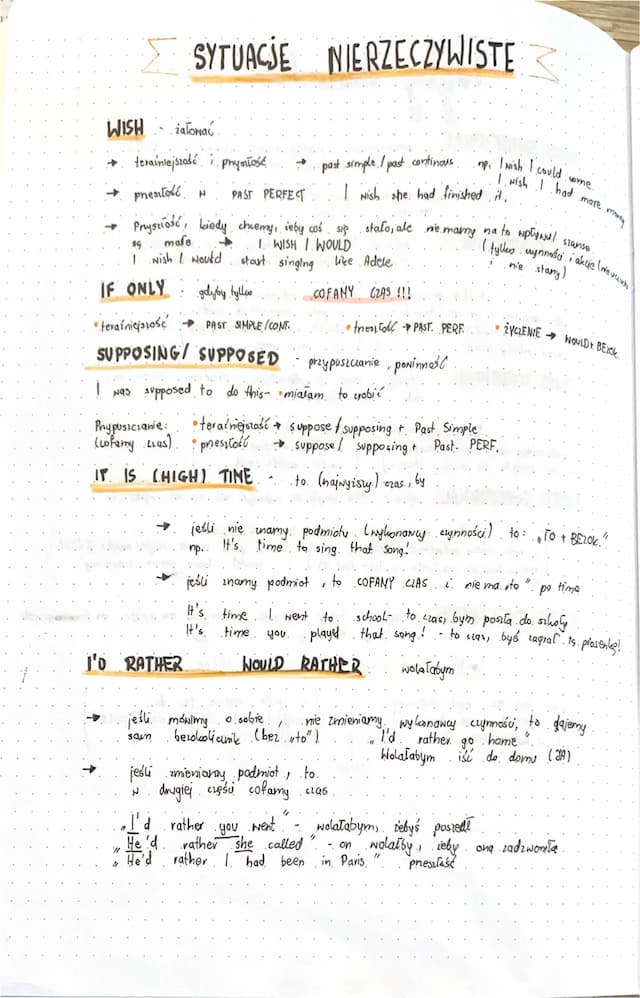 SYTUACJE NIERZECZYWISTE
WISH - żałować
→ teraźniejszość i przyszłość → past simple/past continous np. I wish I could come
I wish I had more money
→ przeszłość N PAST PERFECT I wish she had finished it.
→ Przyszłość, kiedy chcemy, żeby coś się stało, ale nie mamy na to wpływu/ szanse
są małe → I WISH I WOULD (tylko czynności i akcje
I wish I would start singing like Adele i nie stany)
IF ONLY - gdyby tylko COFAMY CZAS !!!
• teraźniejszość → PAST SIMPLE/CONT. • przeszłość → PAST. PERF. • ŻYCZENIE → WOULD+ BEZOK.
SUPPOSING/ SUPPOSED - przypuszczanie, powinność
I was supposed to do this- miałam to zrobić
Przypuszczanie: • teraźniejszość → suppose/supposing + Past Simple
(cofamy czas) • przeszłość → suppose/ supposing + Past. PERF.
IT IS (HIGH) TIME - to (najwyższy) czas, by
→ jeśli nie znamy podmiotu (wykonawcy czynności) to: „TO + BEZOK."
np. It's time to sing that song!
→ jeśli znamy podmiot, to COFAMY CZAS i nie ma „to" po time
It's time I went to school- to czas, bym poszła do szkoły
It's time you played that song! - to czas, byś zagrał tę piosenkę!
I'D RATHER WOULD RATHER wolałabym
→ jeśli mówimy o sobie, nie zmieniamy wykonawcy czynności, to dajemy
sam bezokolicznik (bez „to") „I'd rather go home"
Wolałabym iść do domu (JA)
→ jeśli zmieniamy podmiot, to
w drugiej części cofamy czas
„I'd rather you went" - wolałabym, żebyś poszedł
„He'd rather she called" - on wolałby, żeby ona zadzwoniła
„He'd rather I had been in Paris" przeszłość